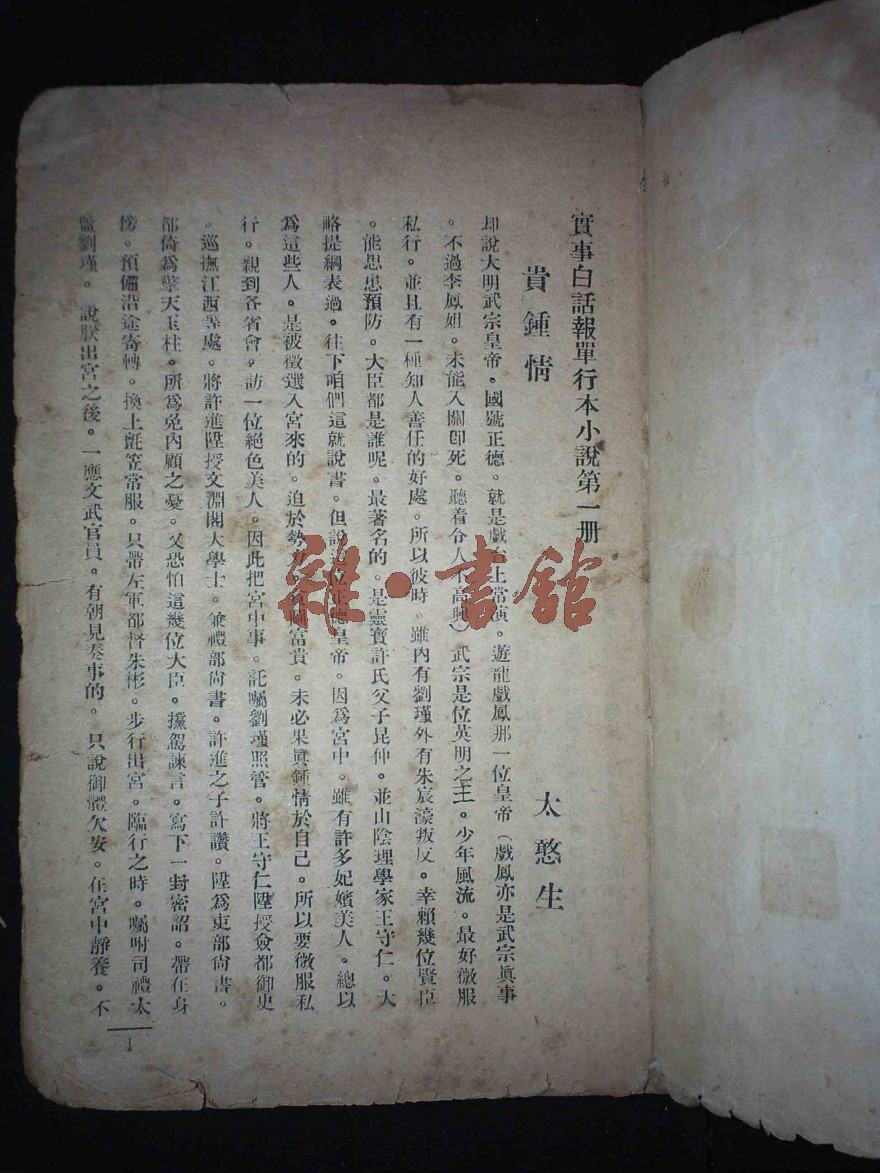 實事白話報單行本小說第一册
貴鍾情
太憨生
却說大明武宗皇帝。國號正德。就是戲台上常演。遊龍戲鳳那一位皇帝(戲鳳亦是武宗眞事
。不過李鳳姐。未能入關卽死。聽着令人不高興)武宗是位英明之主。少年風流。最好微服
私行。並且有一種知人善任的好處。所以彼時。雖內有劉瑾外有朱宸濠叛反。幸賴幾位賢臣
。能思患預防。大臣都是誰呢。最著名的。是靈寶許氏父子昆仲。並山陰理學家王守仁。大
略提綱表過。往下咱們這就說書。但說這位正德皇帝。因爲宮中。雖有許多妃嬪美人。總以
爲這些人。是被徵選入宮來的。迫於勢力。富貴。未必果眞鍾情於自己。所以要微服私
行。親到各省會。訪一位絕色美人。因此把宮中事。託囑劉瑾照管。將王守仁陞授僉都御史
。巡撫江西等處。將許進陞授文淵閣大學士。兼禮部尙書。許進之子許讚。陞爲吏部尙書。
都倚爲擎天玉柱。所爲免內顧之憂。又恐怕這幾位大臣。攩駕諫言。寫下一封密詔。帶在身
傍。預備沿途寄轉。換上氈笠常服。只帶左軍都督朱彬。步行出宮。臨行之時。囑咐司禮太
監劉瑾。說朕出宮之後。一應文武官員。有朝見奏事的。只說御體欠安。在宮中靜養。不
1
雜·書館